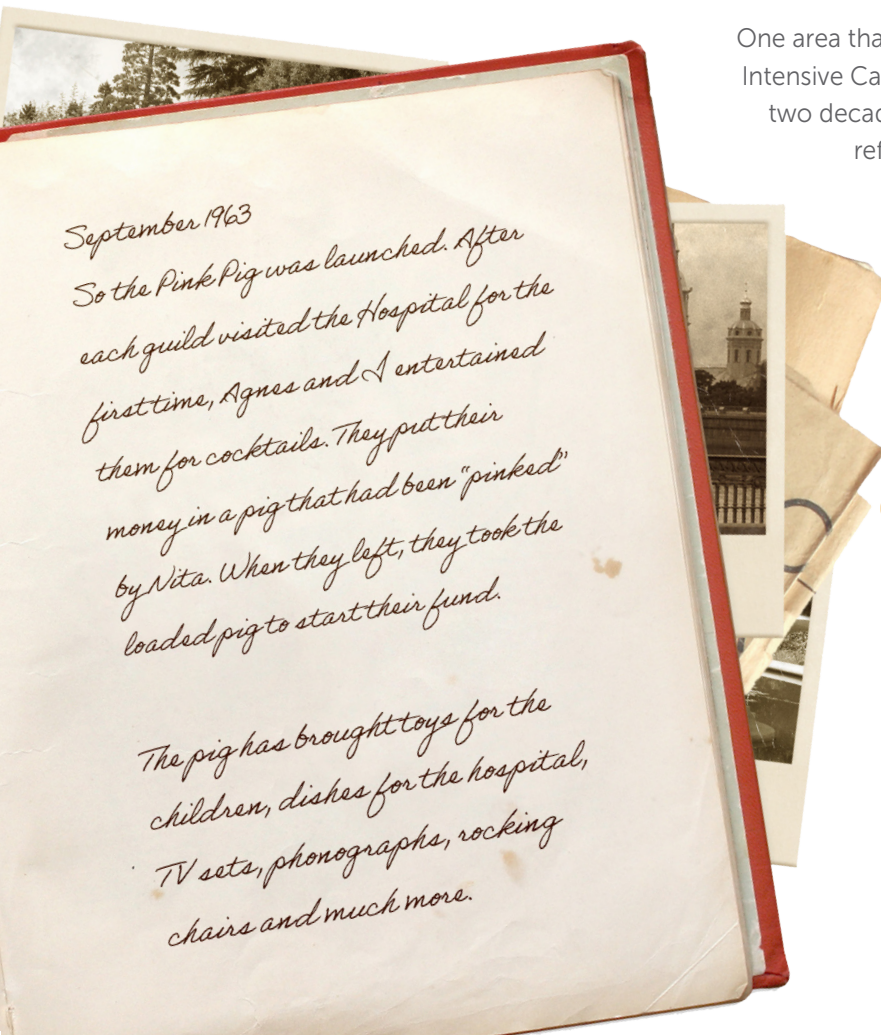 One area tha
Intensive Ca
two decad
ref
September 1963
So the Pink Pig was launched. After
each guild visited the Hospital for the
first time, Agnes and I entertained
them for cocktails. They put their
money in a pig that had been “pinked”
by Nita. When they left, they took the
loaded pig to start their fund.
The pig has brought toys for the
children, dishes for the hospital,
TV sets, phonographs, rocking
chairs and much more.